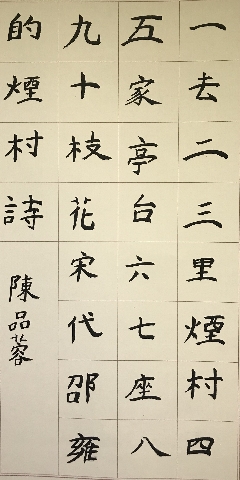 一去二三里煙村四
五家亭台六七座八
九十枝花宋代邵雍
的煙村詩
陳品蓉